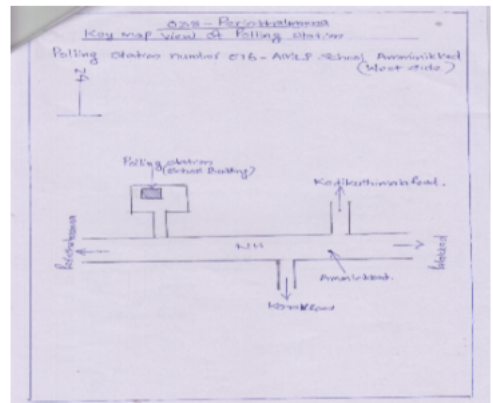 038 - Perinthalmanna
Key map view of Polling station
Polling station number 016 - AMLP School, Amminikkad
(West side)
N
Polling station
(School Building)
Kodikuthimala Road.
Perinthalmanna
NH
Amminikkad.
Road